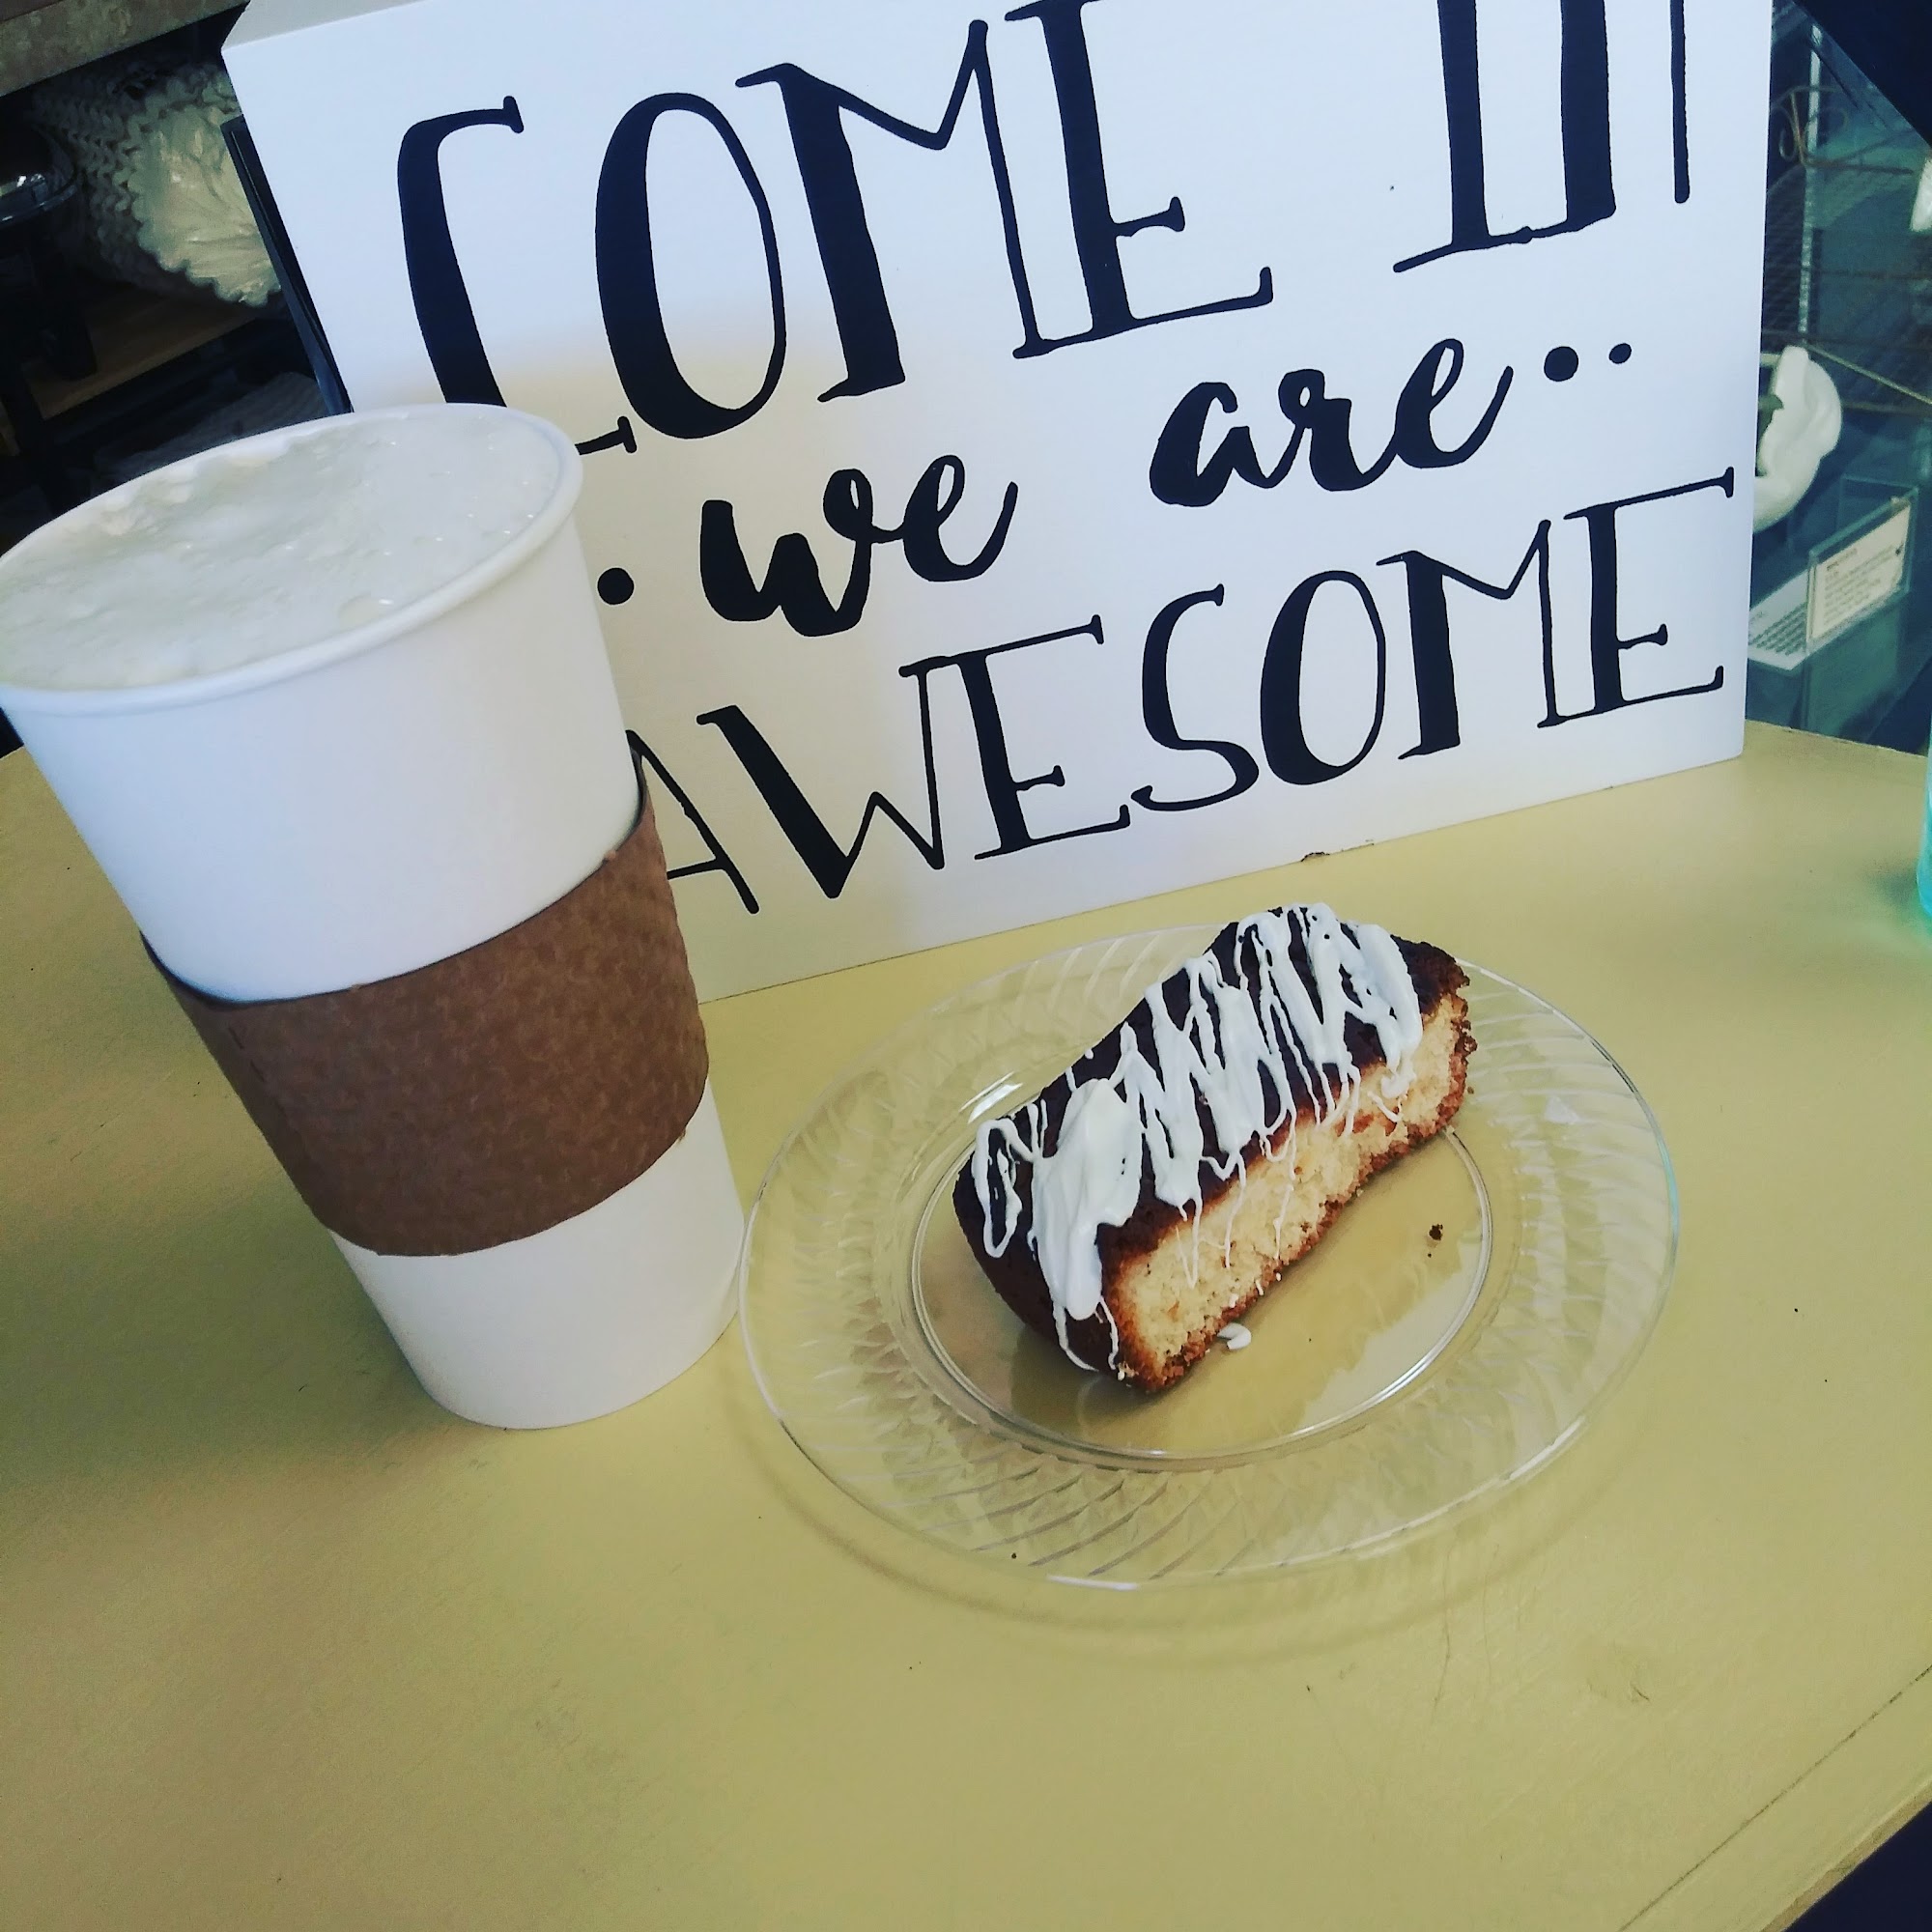 COME IN
·we are··
AWESOME